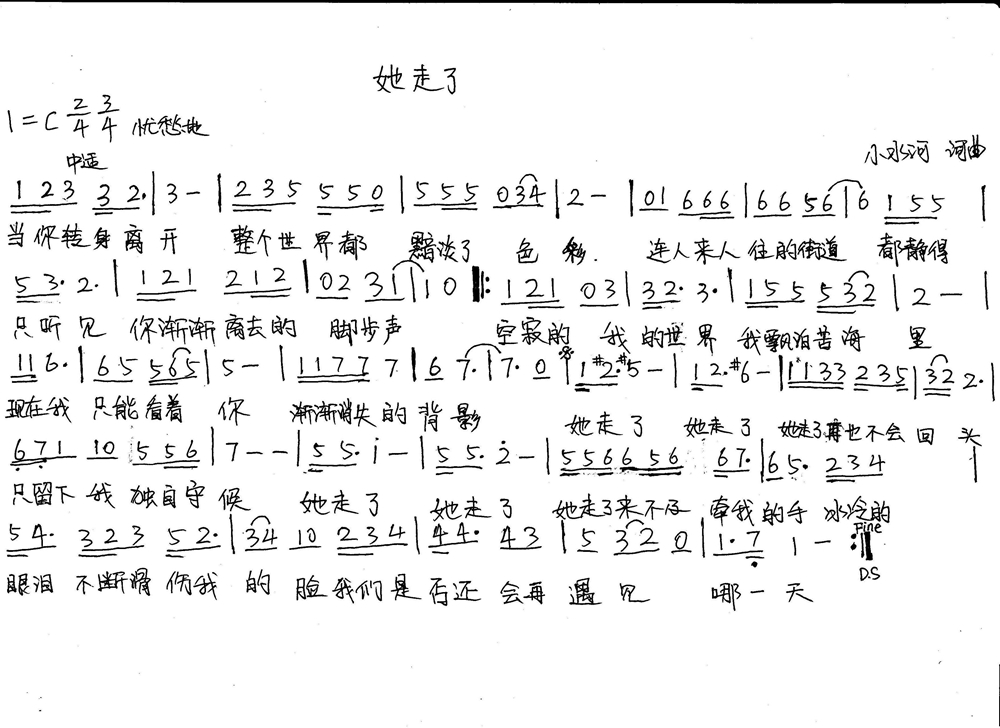 她走了
1=C 2/4 3/4 忧愁地
中速 小水河 词曲
1 2 3 3 2. | 3 - | 2 3 5 5 5 0 | 5 5 5 0 3 4 | 2 - | 0 1 6 6 6 | 6 6 5 6 | 6 1 5 5 |
当你转身离开 整个世界都 黯淡了 色彩. 连人来人往的街道 都静得
5 3. 2. | 1 2 1 2 1 2 | 0 2 3 1 | 1 0 |: 1 2 1 0 3 | 3 2. 3. | 1 5 5 5 3 2 | 2 - |
只听见 你渐渐离去的 脚步声 空寂的 我的世界 我飘泊苦海 里
1 1 6. | 6 5 5 6 5 | 5 - | 1 1 7 7 7 | 6 7. | 7. 0 | 1 #2. #5 - | 1 2. #6 - | 1 1 3 3 2 3 5 | 3 2 2. |
现在我 只能看着 你 渐渐消失的背影 她走了 她走了 她走了再也不会回头
6 7 1 1 0 5 5 6 | 7 - - | 5 5. i - | 5 5. 2 - | 5 5 6 6 5 6 6 7. | 6 5. 2 3 4 |
只留下我独自守候 她走了 她走了 她走了来不及 牵我的手 冰冷的
5 4. 3 2 3 5 2. | 3 4 1 0 2 3 4 | 4 4. 4 3 | 5 3 2 0 | 1. 7 1 - :| Fine D.S
眼泪 不断滑伤我 的 脸我们是否还 会再 遇见 哪一天